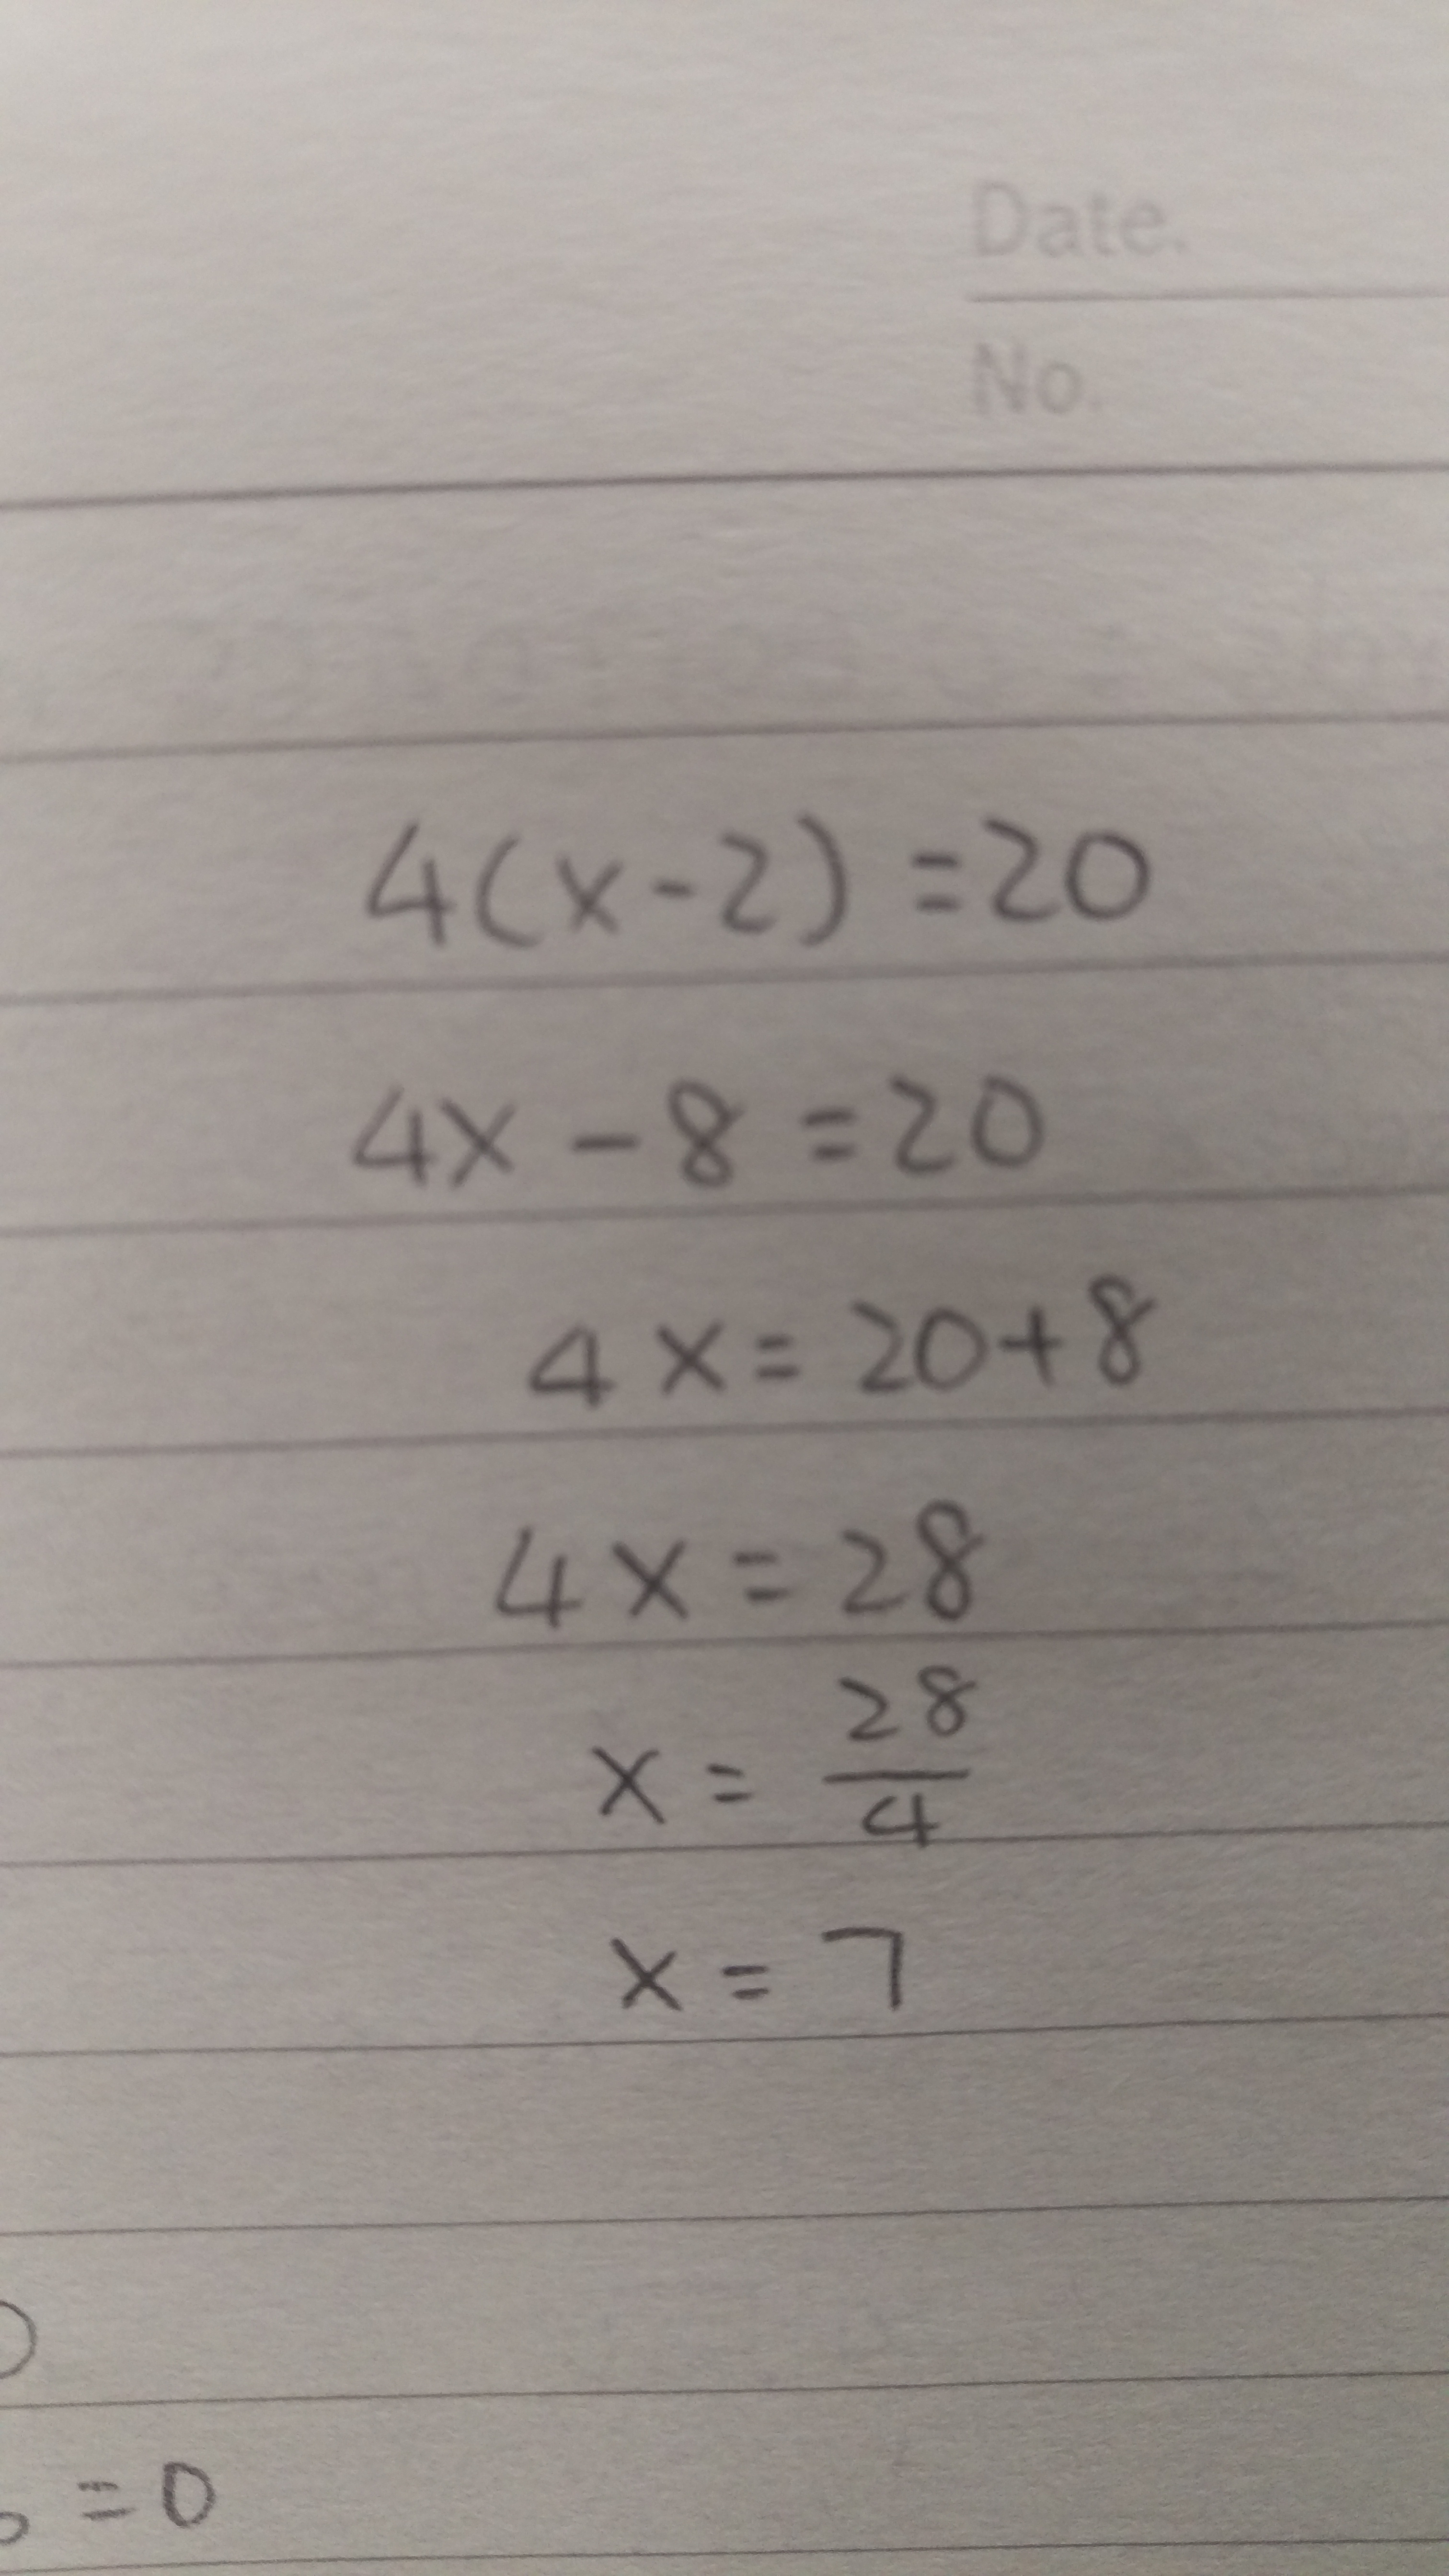 Date.
No.
4(x-2) =20
4x - 8 =20
4x = 20+8
4x = 28
x = 28/4
x = 7
=0